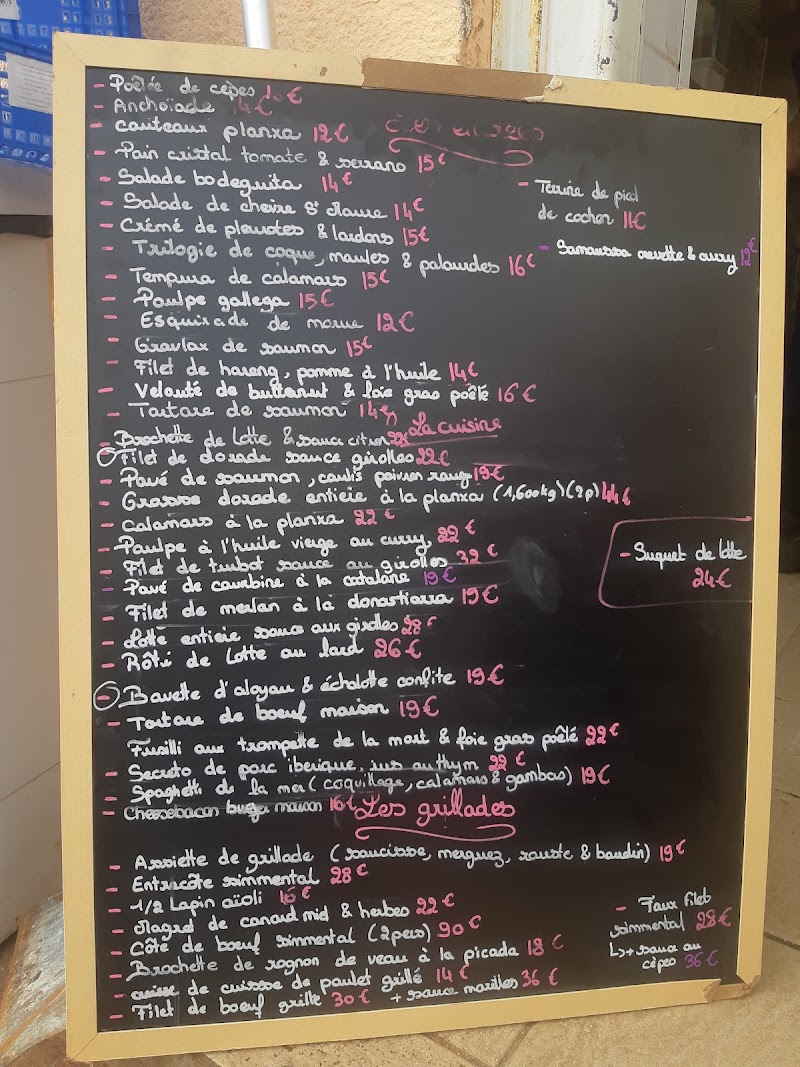 - Poêlée de cèpes 10€
- Anchoïade 14€
- couteaux planxa 12€
Les entrées
- Pain cristal tomate & serrano 15€
- Salade bodeguita 14€
- Salade de chèvre St Maure 14€
- Crémé de pleurotes & lardons 15€
- Trilogie de coque, moules & palourdes 16€
- Terrine de pied
de cochon 11€
- Samoussa crevette & curry 12€
- Tempura de calamars 15€
- Poulpe gallega 15€
- Esquixade de morue 12€
- Gravlax de saumon 15€
- Filet de hareng, pomme à l'huile 14€
- Velouté de butternut & foie gras poêlé 16€
- Tartare de saumon 14€
La cuisine
- Brochette de lotte & sauce citron 22€
- Filet de dorade sauce girolles 22€
- Pavé de saumon, coulis poivron rouge 19€
- Grosse dorade entière à la planxa (1,600kg) (2p) 44€
- Calamars à la planxa 22€
- Poulpe à l'huile vierge au curry 22€
- Filet de turbot sauce au girolles 32€
- Pavé de courbine à la catalane 19€
- Filet de merlan à la donostiarra 19€
- Lotte entière sauce aux girolles 28€
- Rôti de lotte au lard 26€
- Suquet de lotte
24€
- Bavette d'aloyau & échalotte confite 19€
- Tartare de boeuf maison 19€
Fusilli aux trompette de la mort & foie gras poêlé 22€
- Secreto de porc iberique, jus au thym 22€
- Spaghetti de la mer (coquillage, calamars & gambas) 19€
- Cheesebacon burger maison 16€
Les grillades
- Assiette de grillade (saucisse, merguez, rouste & boudin) 19€
- Entrecôte simmental 28€
- 1/2 Lapin aïoli 16€
- Magret de canard miel & herbes 22€
- Côte de boeuf simmental (2pers) 90€
- Brochette de rognon de veau à la picada 18€
- cuisse de poulet grillé 14€
- Filet de boeuf grillé 30€ + sauce morilles 36€
- Faux filet
simmental 28€
↳ + sauce au
cèpes 36€